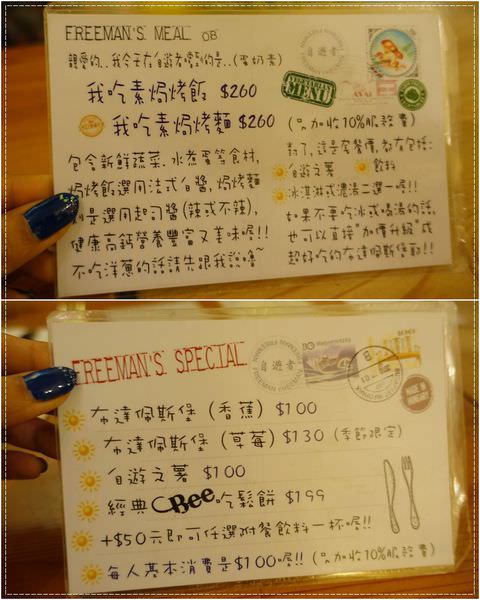 FREEMAN'S MEAL 08
親愛的..我今天在自遊者嚐到的是..(蛋奶素)
自遊者
VEGETARIAN MENU
我吃素焗烤飯 $260
我吃素焗烤麵 $260
(另加收10%服務費)
包含新鮮蔬菜.水煮蛋等食材,
焗烤飯選用法式白醬,焗烤麵
則是選用起司醬(辣或不辣),
健康高鈣營養豐富又美味喔!!
不吃洋蔥的話請先跟我說嚕~
對了,這是套餐價,都有包括:
自遊之薯 飲料
冰淇淋或濃湯二選一喔!!
如果不要吃冰或喝湯的話,
也可以直接"加價升級"成
超好吃的布達佩斯堡勒!!
FREEMAN'S SPECIAL
自遊者
布達佩斯堡 (香蕉) $100
布達佩斯堡 (草莓) $130 (季節限定)
自遊之薯 $100
經典CBee吃鬆餅 $199
+$50元即可任選附餐飲料一杯喔!!
每人基本消費是$100喔!! (另加收10%服務費)